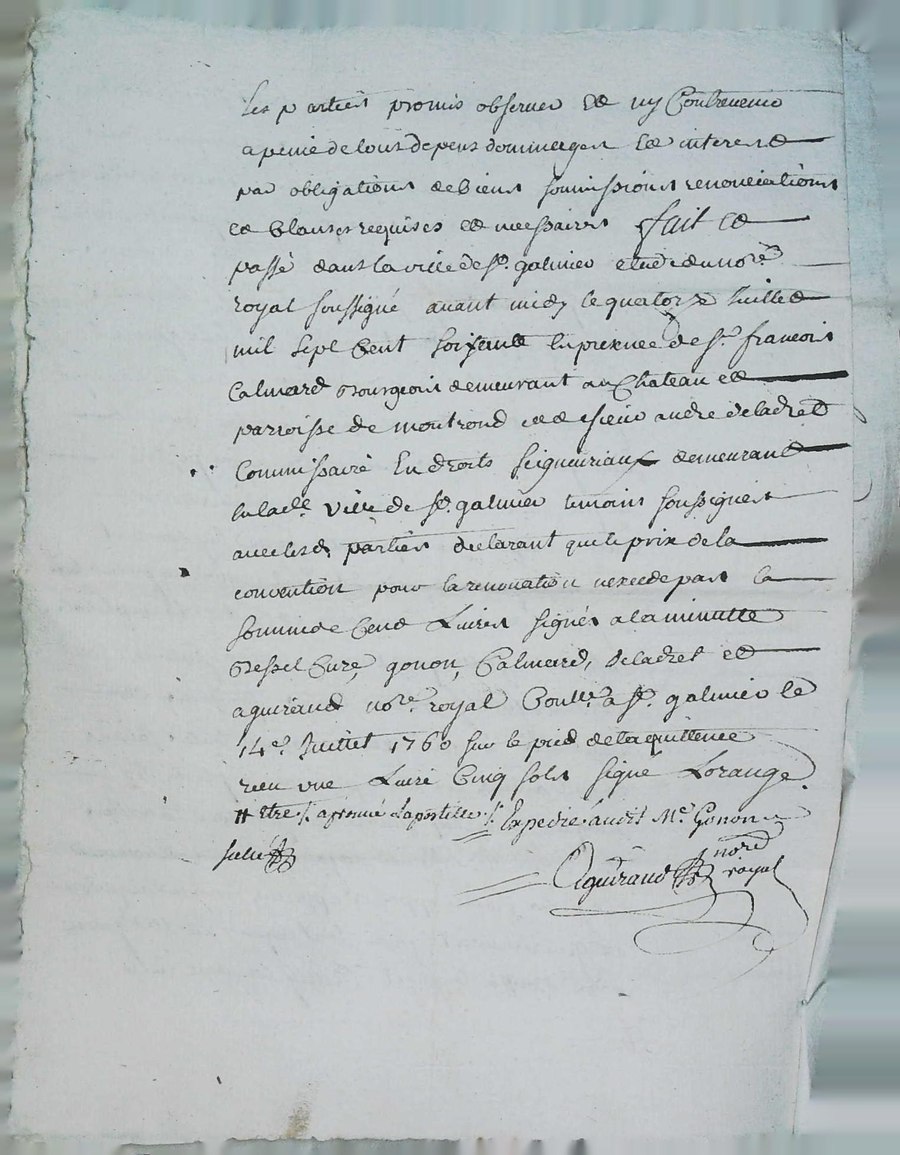 les parties promis observer et ny Contrevenir
a peine de tous depens dommages et interest
par obligations de biens soumissions renonciations
et Clauses requises et necessaires fait et
passé dans la ville de St. galmier etude du nore.
royal soussigné avant midy le quatorze Juillet
mil sept Cent soixante en presence de Sr. francois
Calmard Bourgeois demeurant au Chateau et
parroisse de montrond et de sieur andré deladret
Commissaire En droits seigneuriaux demeurant
en lade. ville de St. galmier temoins soussignés
avec lesd. parties declarant que le prix de la
convention pour la renovation nexcede pas la
somme de Cent Livres signés a la minutte
Bessel Curé, gonon, Calmard, deladret et
aguiraud nore. royal Conllé. a St. galmier le
14e. Juillet 1760 sur le pied de la quittence
reçu une Livre Cinq sols signé Lorange.
# Etre /. aprouvé l'apostille /. Expedié audit Me. Gonon
Aguiraud nore. royal